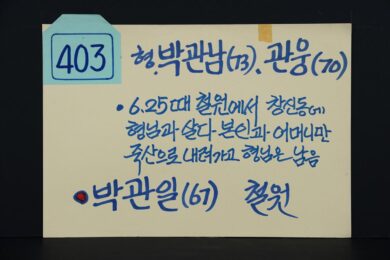 403
형. 박관남(73). 관웅(70)
• 6.25때 철원에서 창신동에
형님과 살다 본인과 어머니만
죽산으로 내려가고 형님은 남음
• 박관일(67) 철원